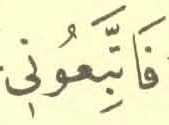 فَاتَّبِعُونِى